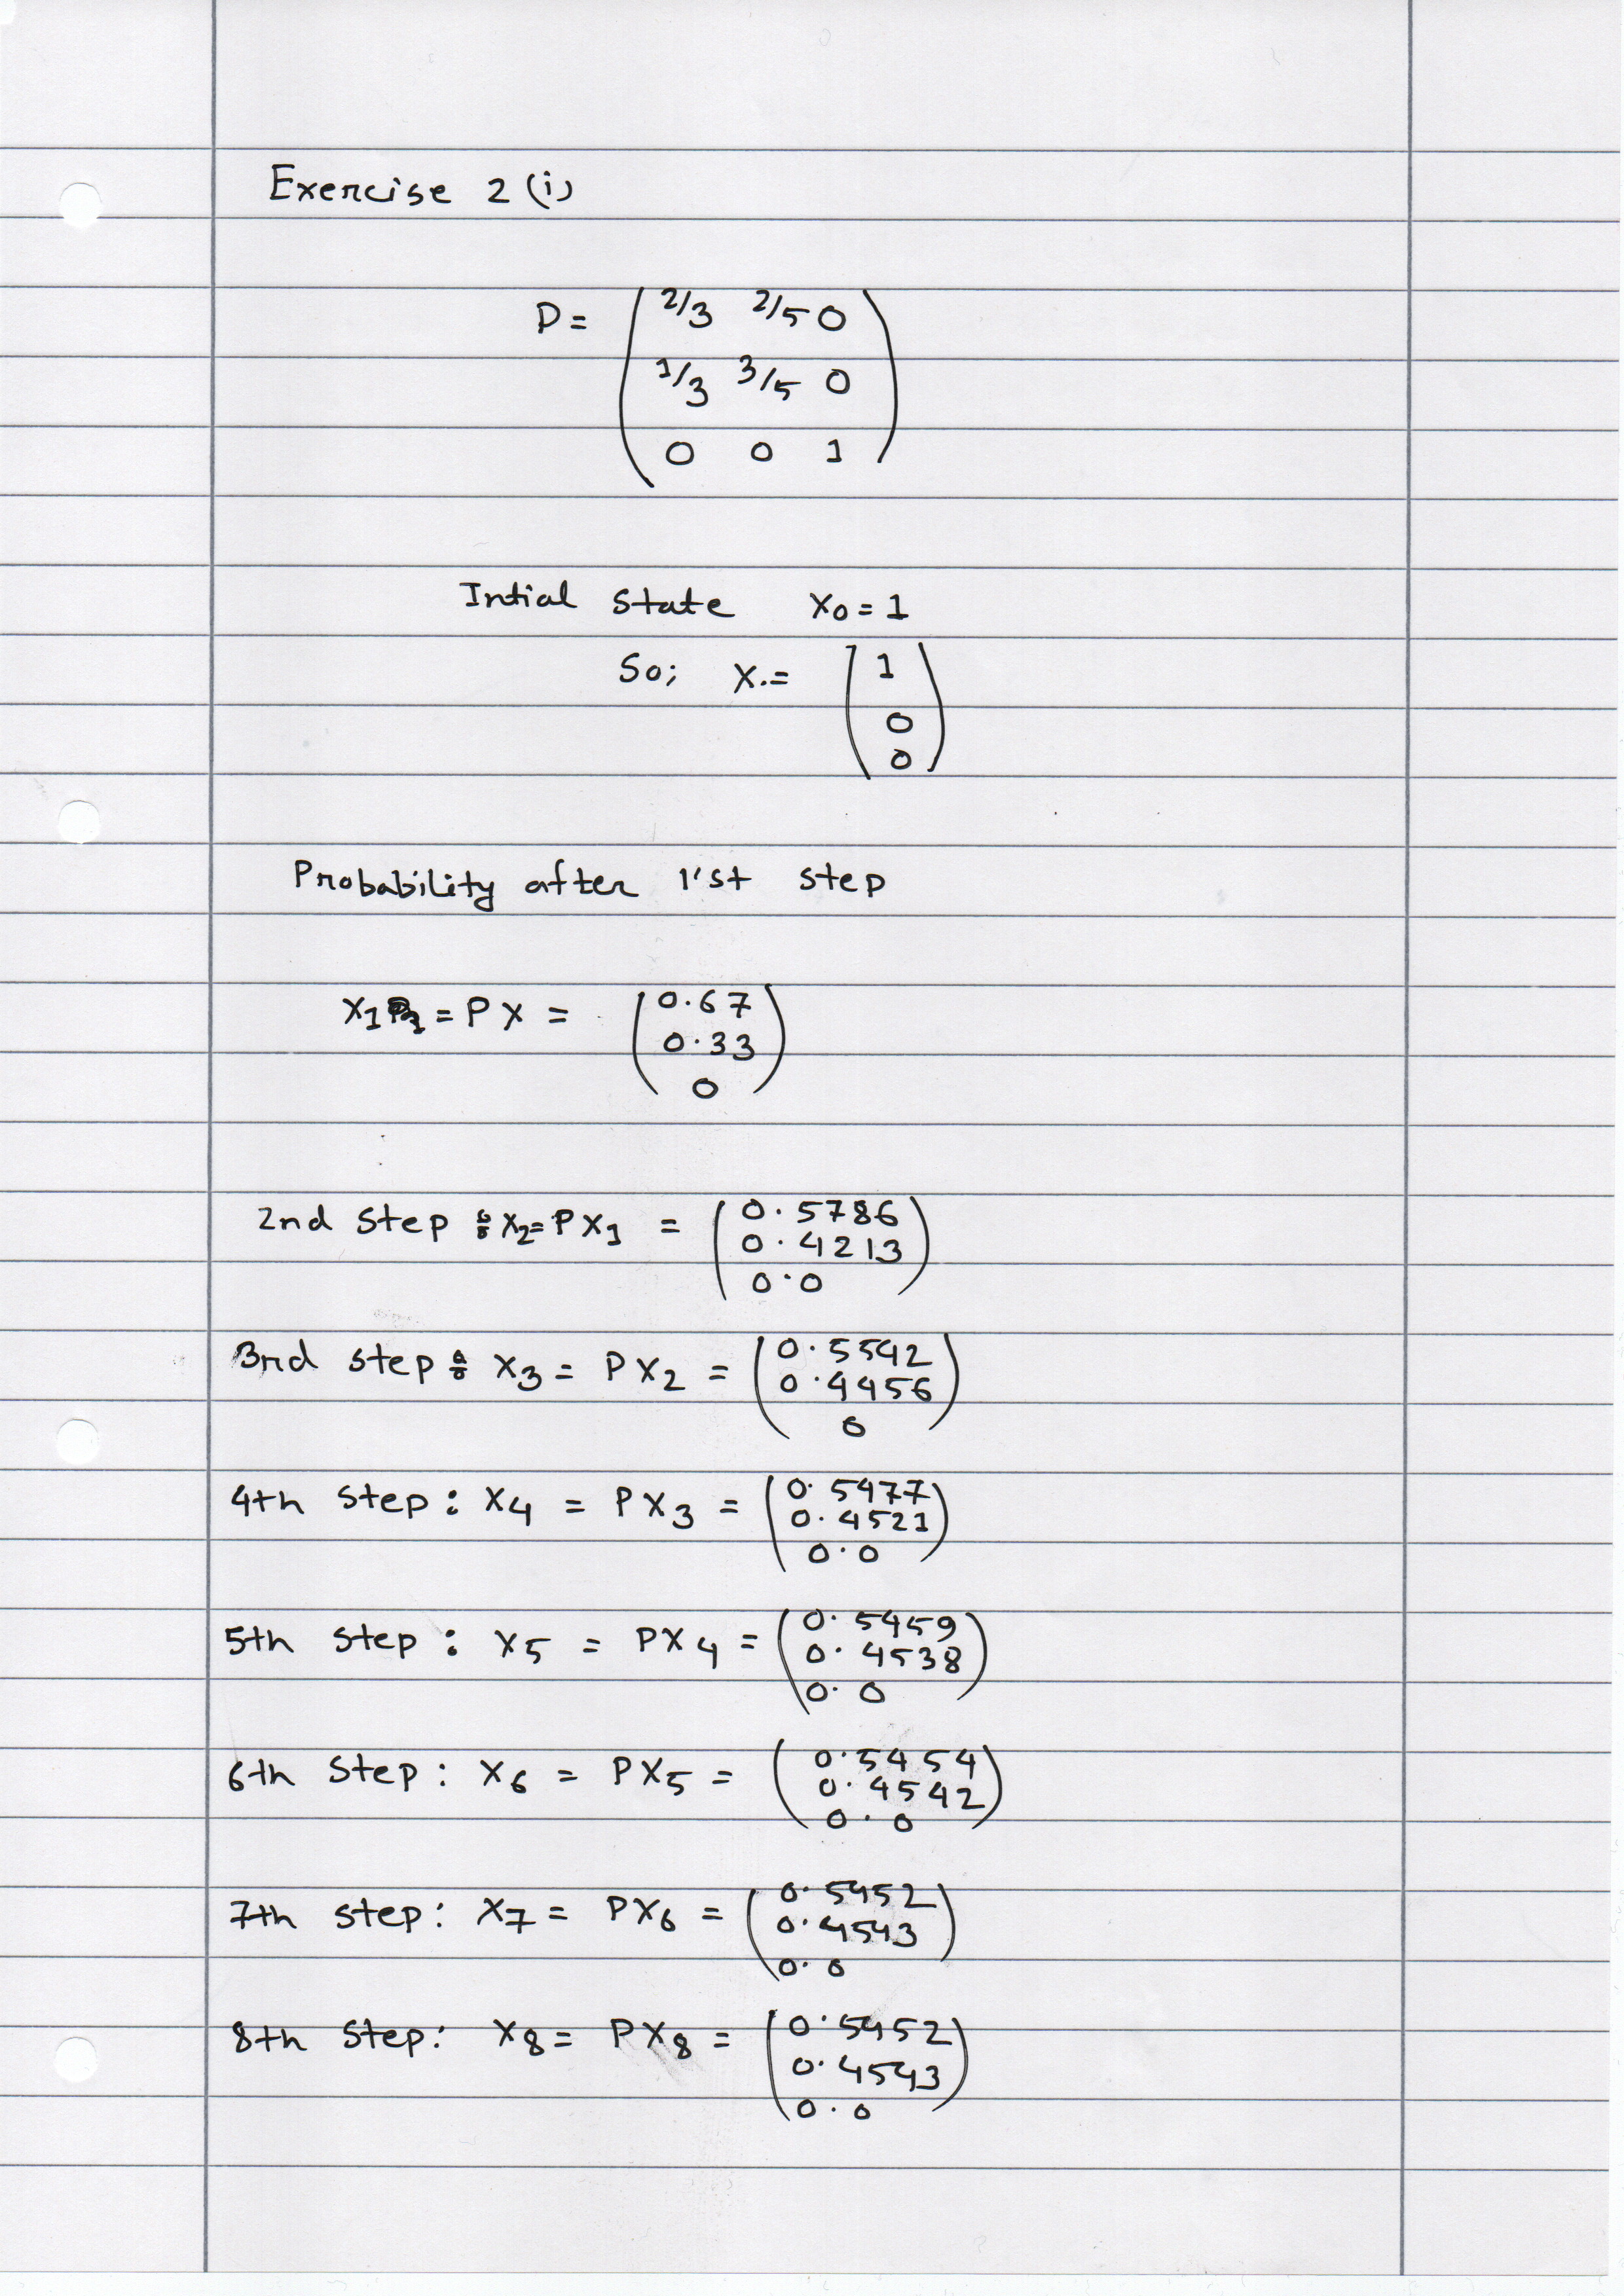 Exercise 2 (i)
P = ( 2/3 2/5 0
1/3 3/5 0
0 0 1 )
Intial state X0 = 1
So; X.= ( 1
0
0 )
Probability after 1'st step
X1 = P X = ( 0.67
0.33
0 )
2nd step : X2= P X1 = ( 0.5786
0.4213
0.0 )
3rd step : X3 = P X2 = ( 0.5542
0.4456
0 )
4th step : X4 = P X3 = ( 0.5477
0.4521
0.0 )
5th step : X5 = P X4 = ( 0.5459
0.4538
0.0 )
6th step : X6 = P X5 = ( 0.5454
0.4542
0.0 )
7th step : X7 = P X6 = ( 0.5452
0.4543
0.0 )
8th step : X8 = P X8 = ( 0.5452
0.4543
0.0 )